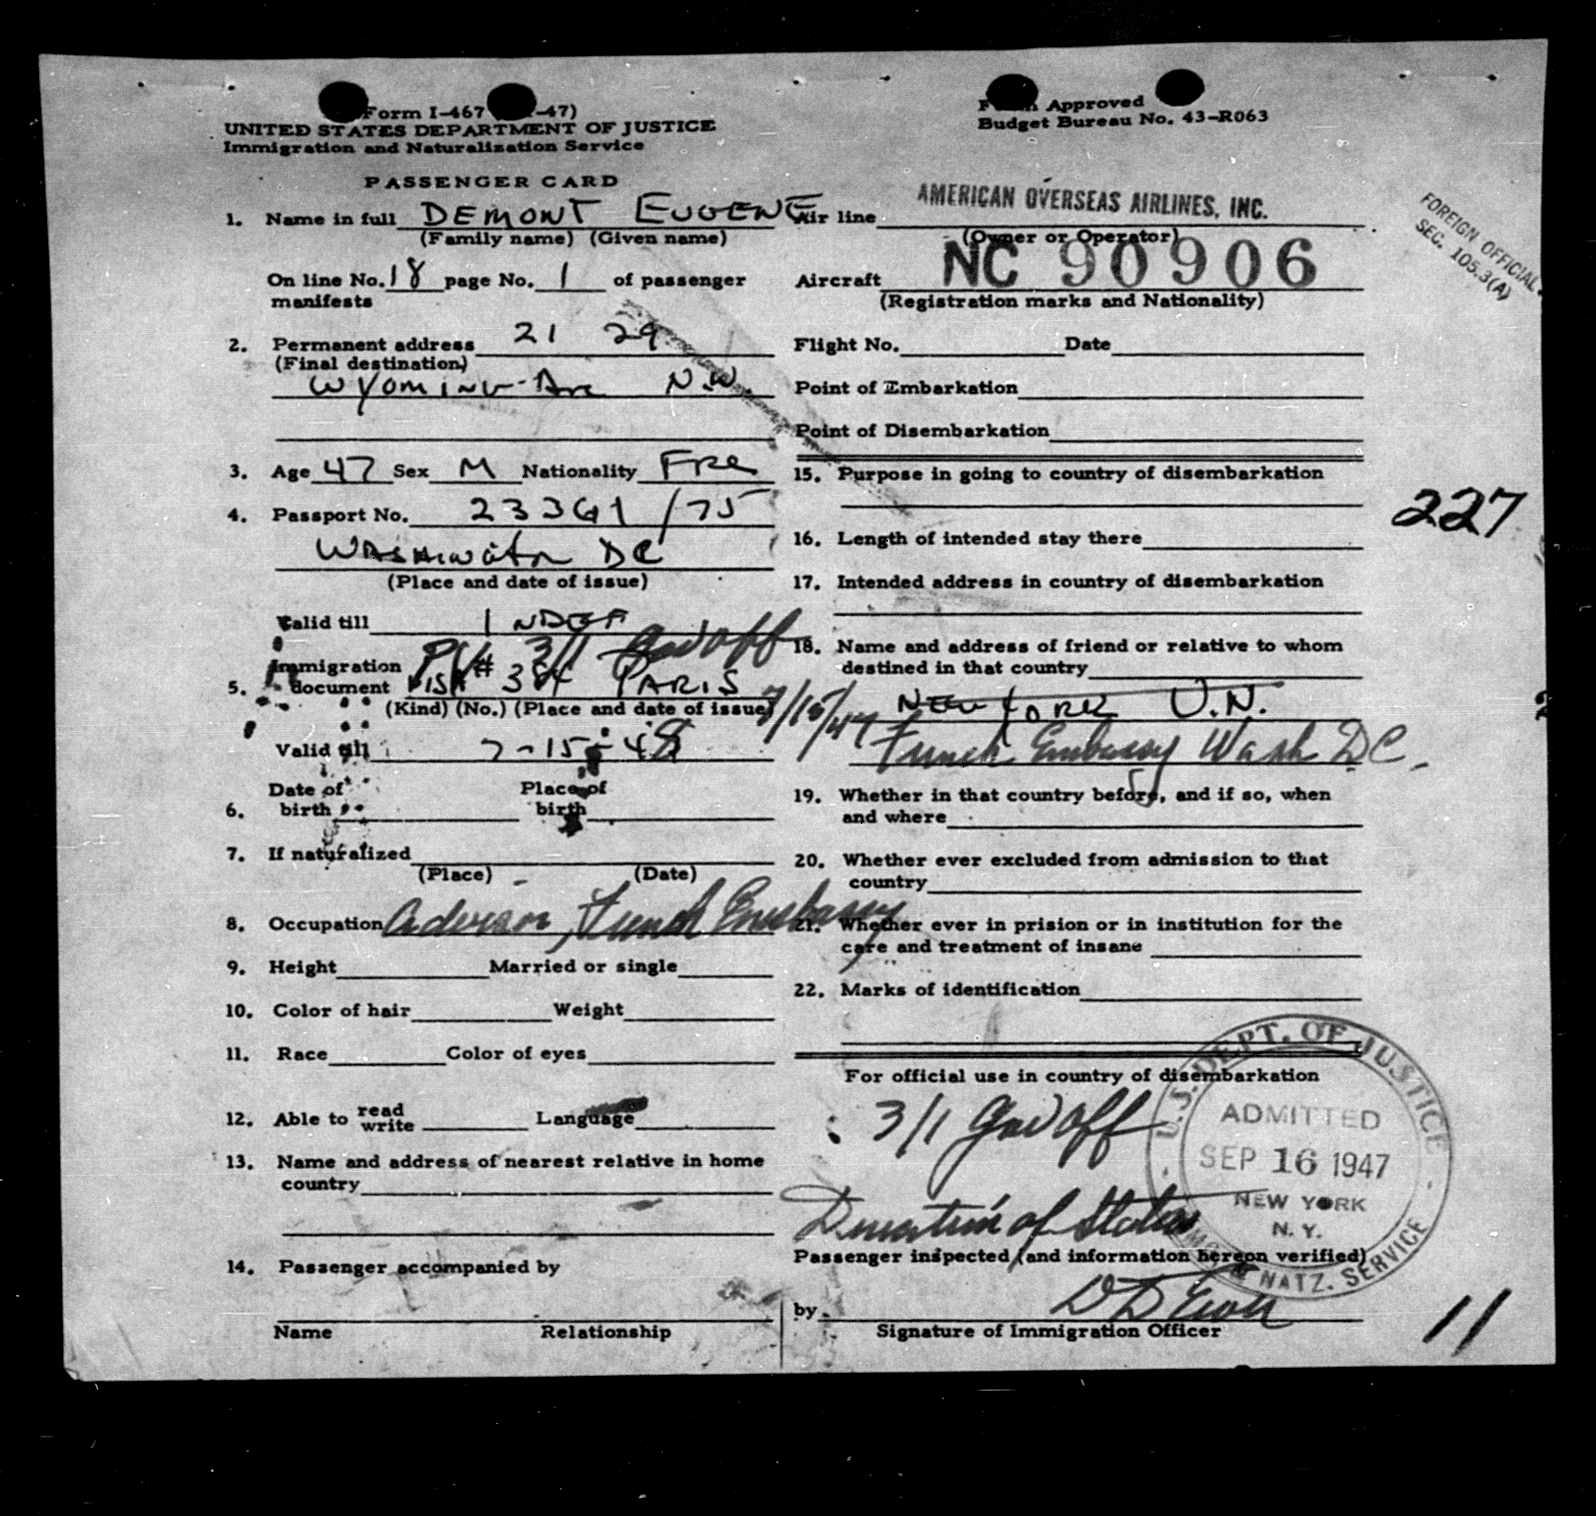 Form I-467 -47)
UNITED STATES DEPARTMENT OF JUSTICE
Immigration and Naturalization Service
PASSENGER CARD
1. Name in full DEMONT EUGENE
(Family name) (Given name)
On line No. 18 page No. 1 of passenger
manifests
2. Permanent address 21 29
(Final destination)
Wyoming Ave N.W.
3. Age 47 Sex M Nationality Fre
4. Passport No. 233G1/75
Washington DC
(Place and date of issue)
Valid till INDEF
PV# 3/1 Gov Off
Immigration
5. document VISA 384 PARIS 7/15/47
(Kind) (No.) (Place and date of issue)
Valid till 7-15-48
Date of Place of
6. birth birth
7. If naturalized
(Place) (Date)
8. Occupation French Embassy
9. Height Married or single
10. Color of hair Weight
11. Race Color of eyes
12. Able to read write Language
13. Name and address of nearest relative in home
country
14. Passenger accompanied by
Name Relationship
Form Approved
Budget Bureau No. 43-R063
Air line AMERICAN OVERSEAS AIRLINES, INC.
(Owner or Operator)
Aircraft NC 90906
(Registration marks and Nationality)
Flight No. Date
Point of Embarkation
Point of Disembarkation
15. Purpose in going to country of disembarkation
16. Length of intended stay there
17. Intended address in country of disembarkation
18. Name and address of friend or relative to whom
destined in that country
New York U.N.
French Embassy Wash D.C.
19. Whether in that country before, and if so, when
and where
20. Whether ever excluded from admission to that
country
21. Whether ever in prision or in institution for the
care and treatment of insane
22. Marks of identification
For official use in country of disembarkation
3/1 Gov Off
Duration of Status
Passenger inspected (and information hereon verified)
by
Signature of Immigration Officer
U.S. DEPT. OF JUSTICE
ADMITTED
SEP 16 1947
NEW YORK
N. Y.
NATZ. SERVICE
FOREIGN OFFICIAL
SEC. 105.3(A)
227
11